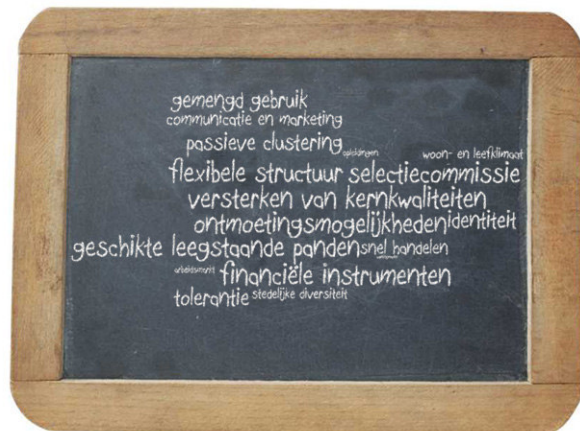 gemengd gebruik
communicatie en marketing
passieve clustering opleidingen woon- en leefklimaat
flexibele structuur selectiecommissie
versterken van kernkwaliteiten
ontmoetingsmogelijkheden identiteit
geschikte leegstaande panden snel handelen
arbeidsmarkt financiële instrumenten
tolerantie stedelijke diversiteit